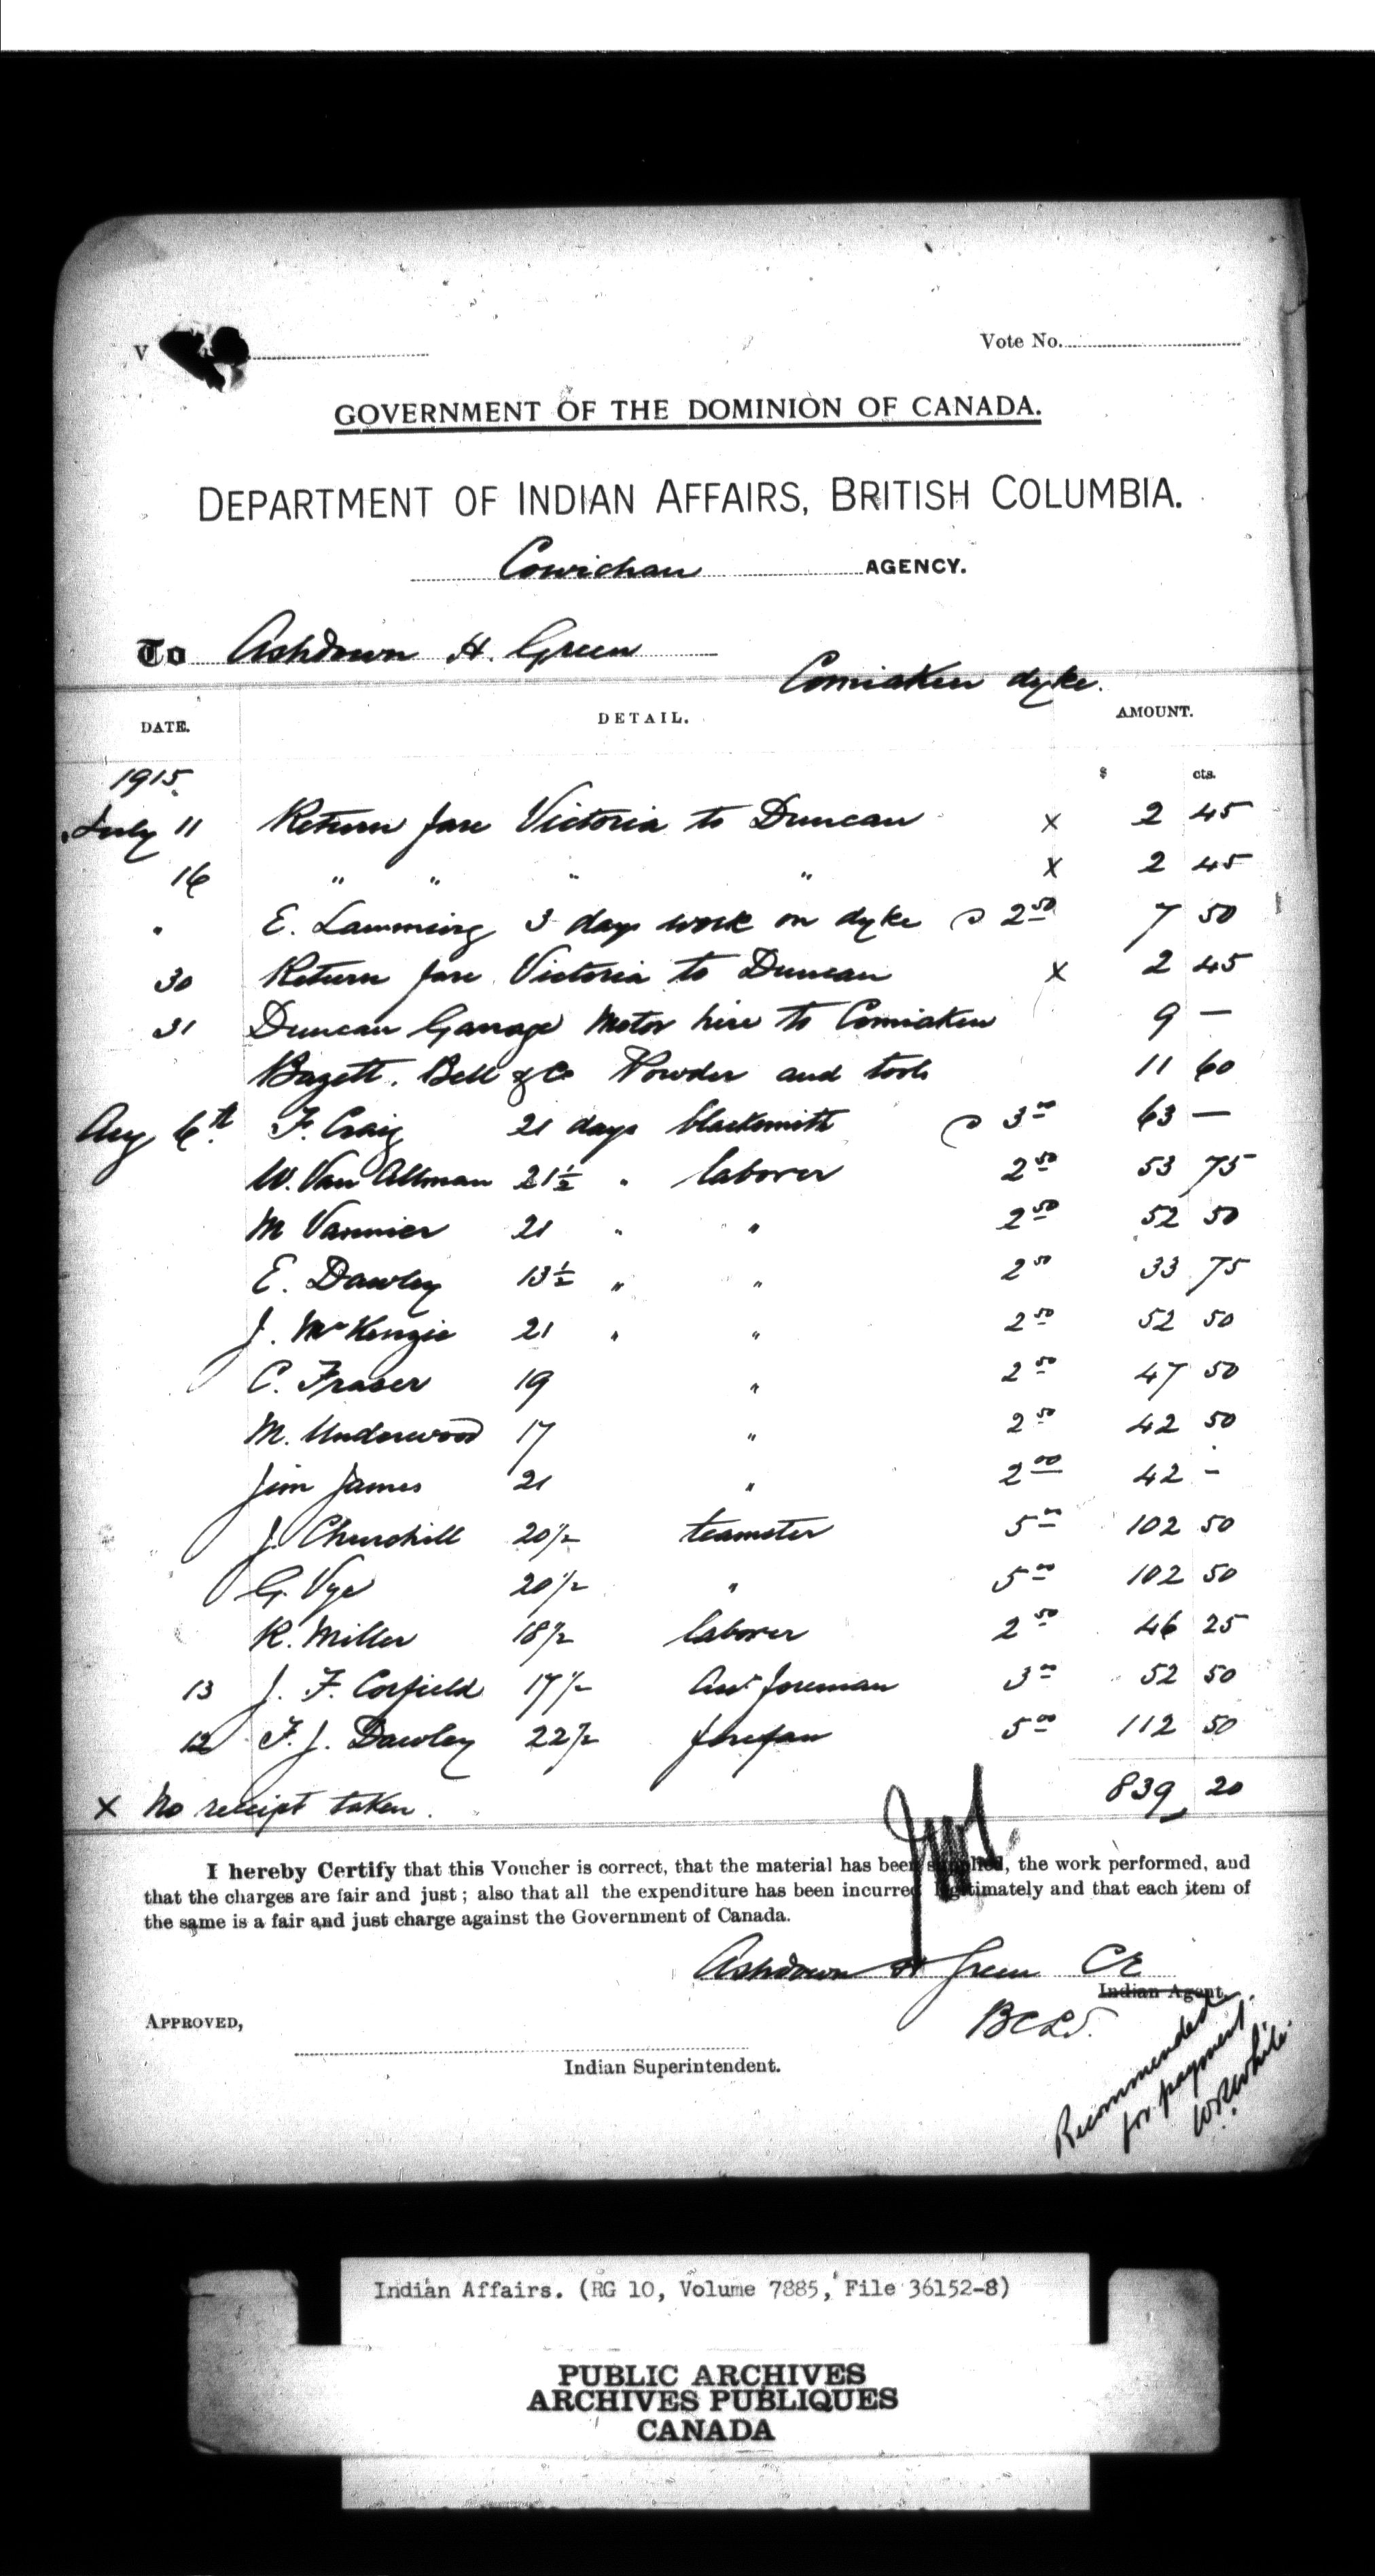 V
Vote No.
GOVERNMENT OF THE DOMINION OF CANADA.
DEPARTMENT OF INDIAN AFFAIRS, BRITISH COLUMBIA.
Cowichan AGENCY.
To Ashdown H. Green
Comiaken dyke.
DATE. DETAIL. AMOUNT.
1915. $ cts.
July 11 Return fare Victoria to Duncan x 2 45
16 " " " " x 2 45
" E. Lamming 3 days work on dyke @ 2 50 7 50
30 Return fare Victoria to Duncan x 2 45
31 Duncan Garage Motor hire to Comiaken 9 —
Bazett, Bell & Co Powder and tools 11 60
Aug 6th F. Craig 21 days blacksmith @ 3 00 63 —
W. Van Allman 21 1/2 " laborer 2 50 53 75
M Vannier 21 " " 2 50 52 50
E. Dawley 13 1/2 " " 2 50 33 75
J. McKenzie 21 " " 2 50 52 50
C. Fraser 19 " 2 50 47 50
M. Underwood 17 " 2 50 42 50
Jim James 21 " 2 00 42 -
J. Churchill 20 1/2 teamster 5 00 102 50
G. Vye 20 1/2 " 5 00 102 50
R. Miller 18 1/2 laborer 2 50 46 25
13 J. F. Corfield 17 1/2 Asst foreman 3 00 52 50
12 F. J. Dawley 22 1/2 foreman 5 00 112 50
839 20
x No receipt taken.
I hereby Certify that this Voucher is correct, that the material has been supplied, the work performed, and
that the charges are fair and just; also that all the expenditure has been incurred legitimately and that each item of
the same is a fair and just charge against the Government of Canada.
Ashdown H Green CE
Indian Agent.
BCLS.
APPROVED,
Indian Superintendent.
Recommended
for payment.
W.R. White.
Indian Affairs. (RG 10, Volume 7885, File 36152-8)
PUBLIC ARCHIVES
ARCHIVES PUBLIQUES
CANADA